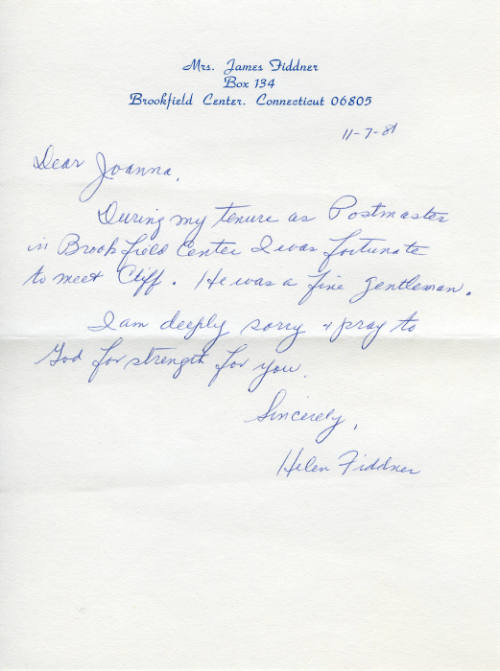 Mrs. James Fiddner
Box 134
Brookfield Center, Connecticut 06805
11-7-81
Dear Joanna,
During my tenure as Postmaster
in Brookfield Center I was fortunate
to meet Cliff. He was a fine gentleman.
I am deeply sorry + pray to
God for strength for you.
Sincerely,
Helen Fiddner